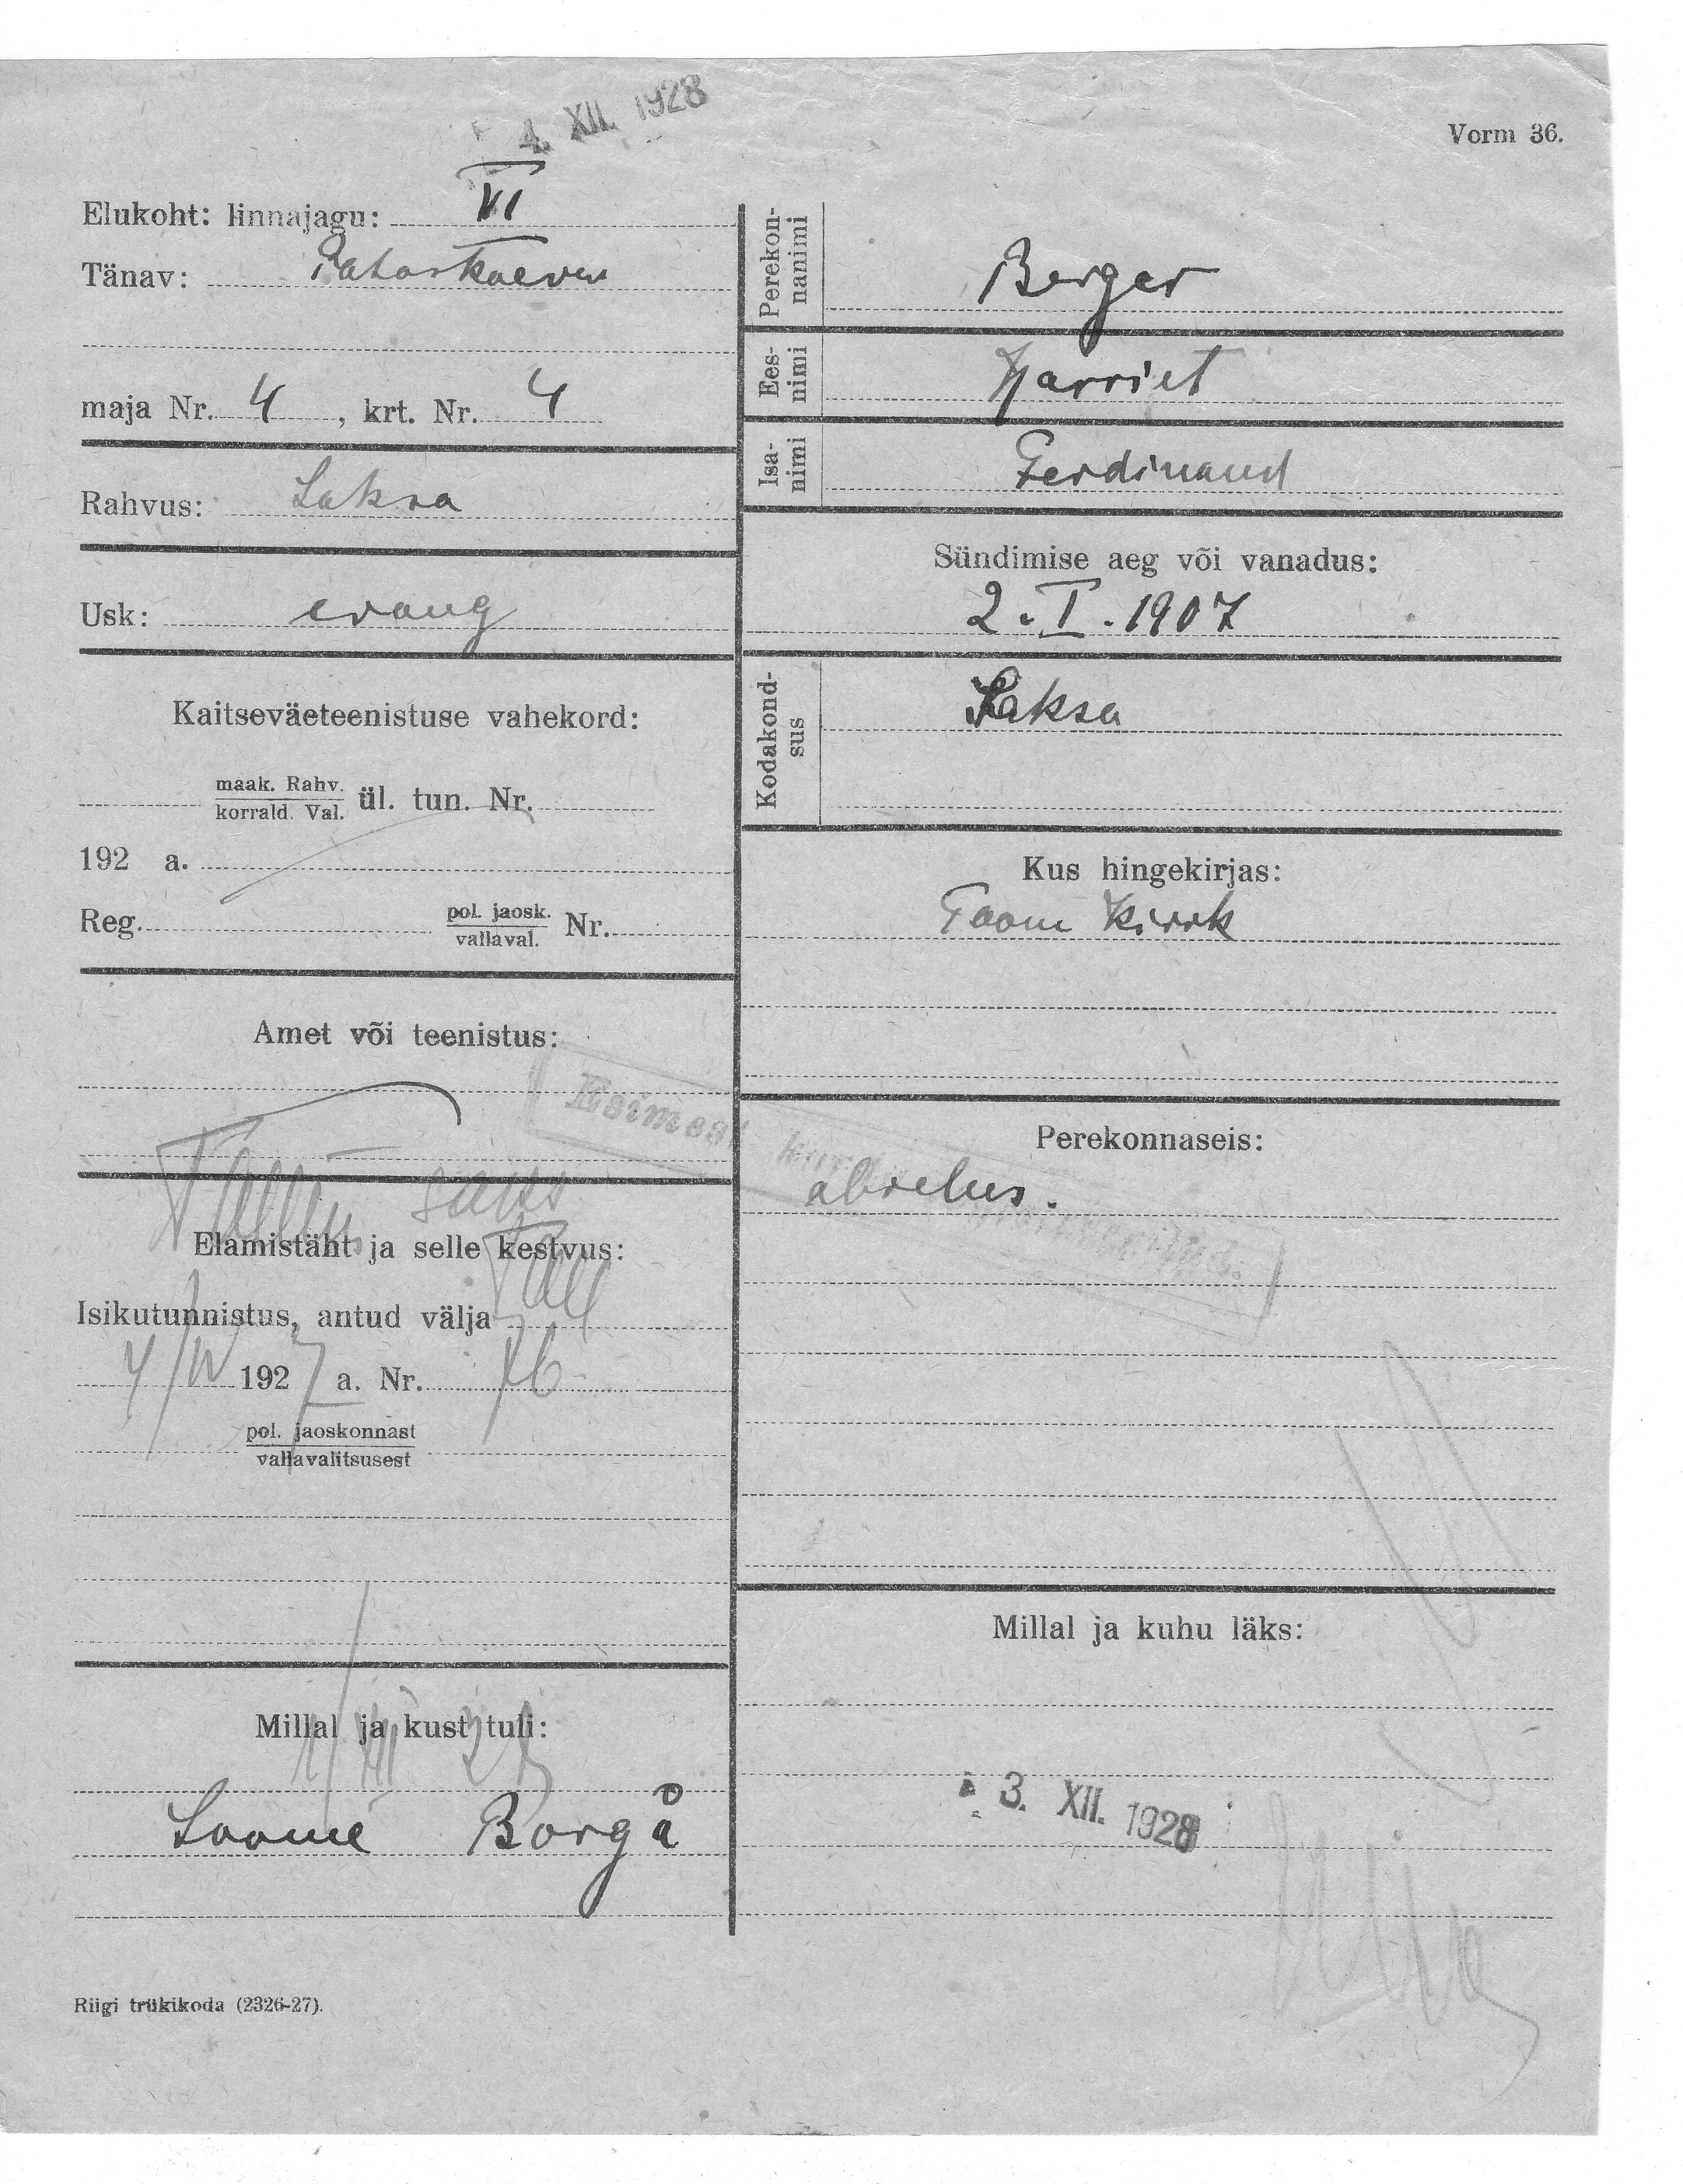 4. XII. 1928
Vorm 36.
Elukoht: linnajagu: VI
Tänav: Rataskaevu
maja Nr. 4, krt. Nr. 4
Rahvus: Saksa
Usk: evang
Kaitseväeteenistuse vahekord:
maak. Rahv.
korrald. Val.
ül. tun. Nr.
192 a.
Reg. pol. jaosk. Nr.
vallaval.
Amet või teenistus:
Elamistäht ja selle kestvus:
Isikutunnistus, antud välja Tall
4/IV 1927 a. Nr.
pol. jaoskonnast
vallavalitsusest
Millal ja kust tuli:
Soome Borgå
Riigi trükikoda (2326-27).
Perekon-
nanimi
Berger
Ees-
nimi
Harriet
Isa-
nimi
Ferdinand
Sündimise aeg või vanadus:
2. I. 1907
Kodakond-
sus
Saksa
Kus hingekirjas:
Toom Kirik
Esimest
Perekonnaseis:
abielus.
Millal ja kuhu läks:
3. XII. 1928